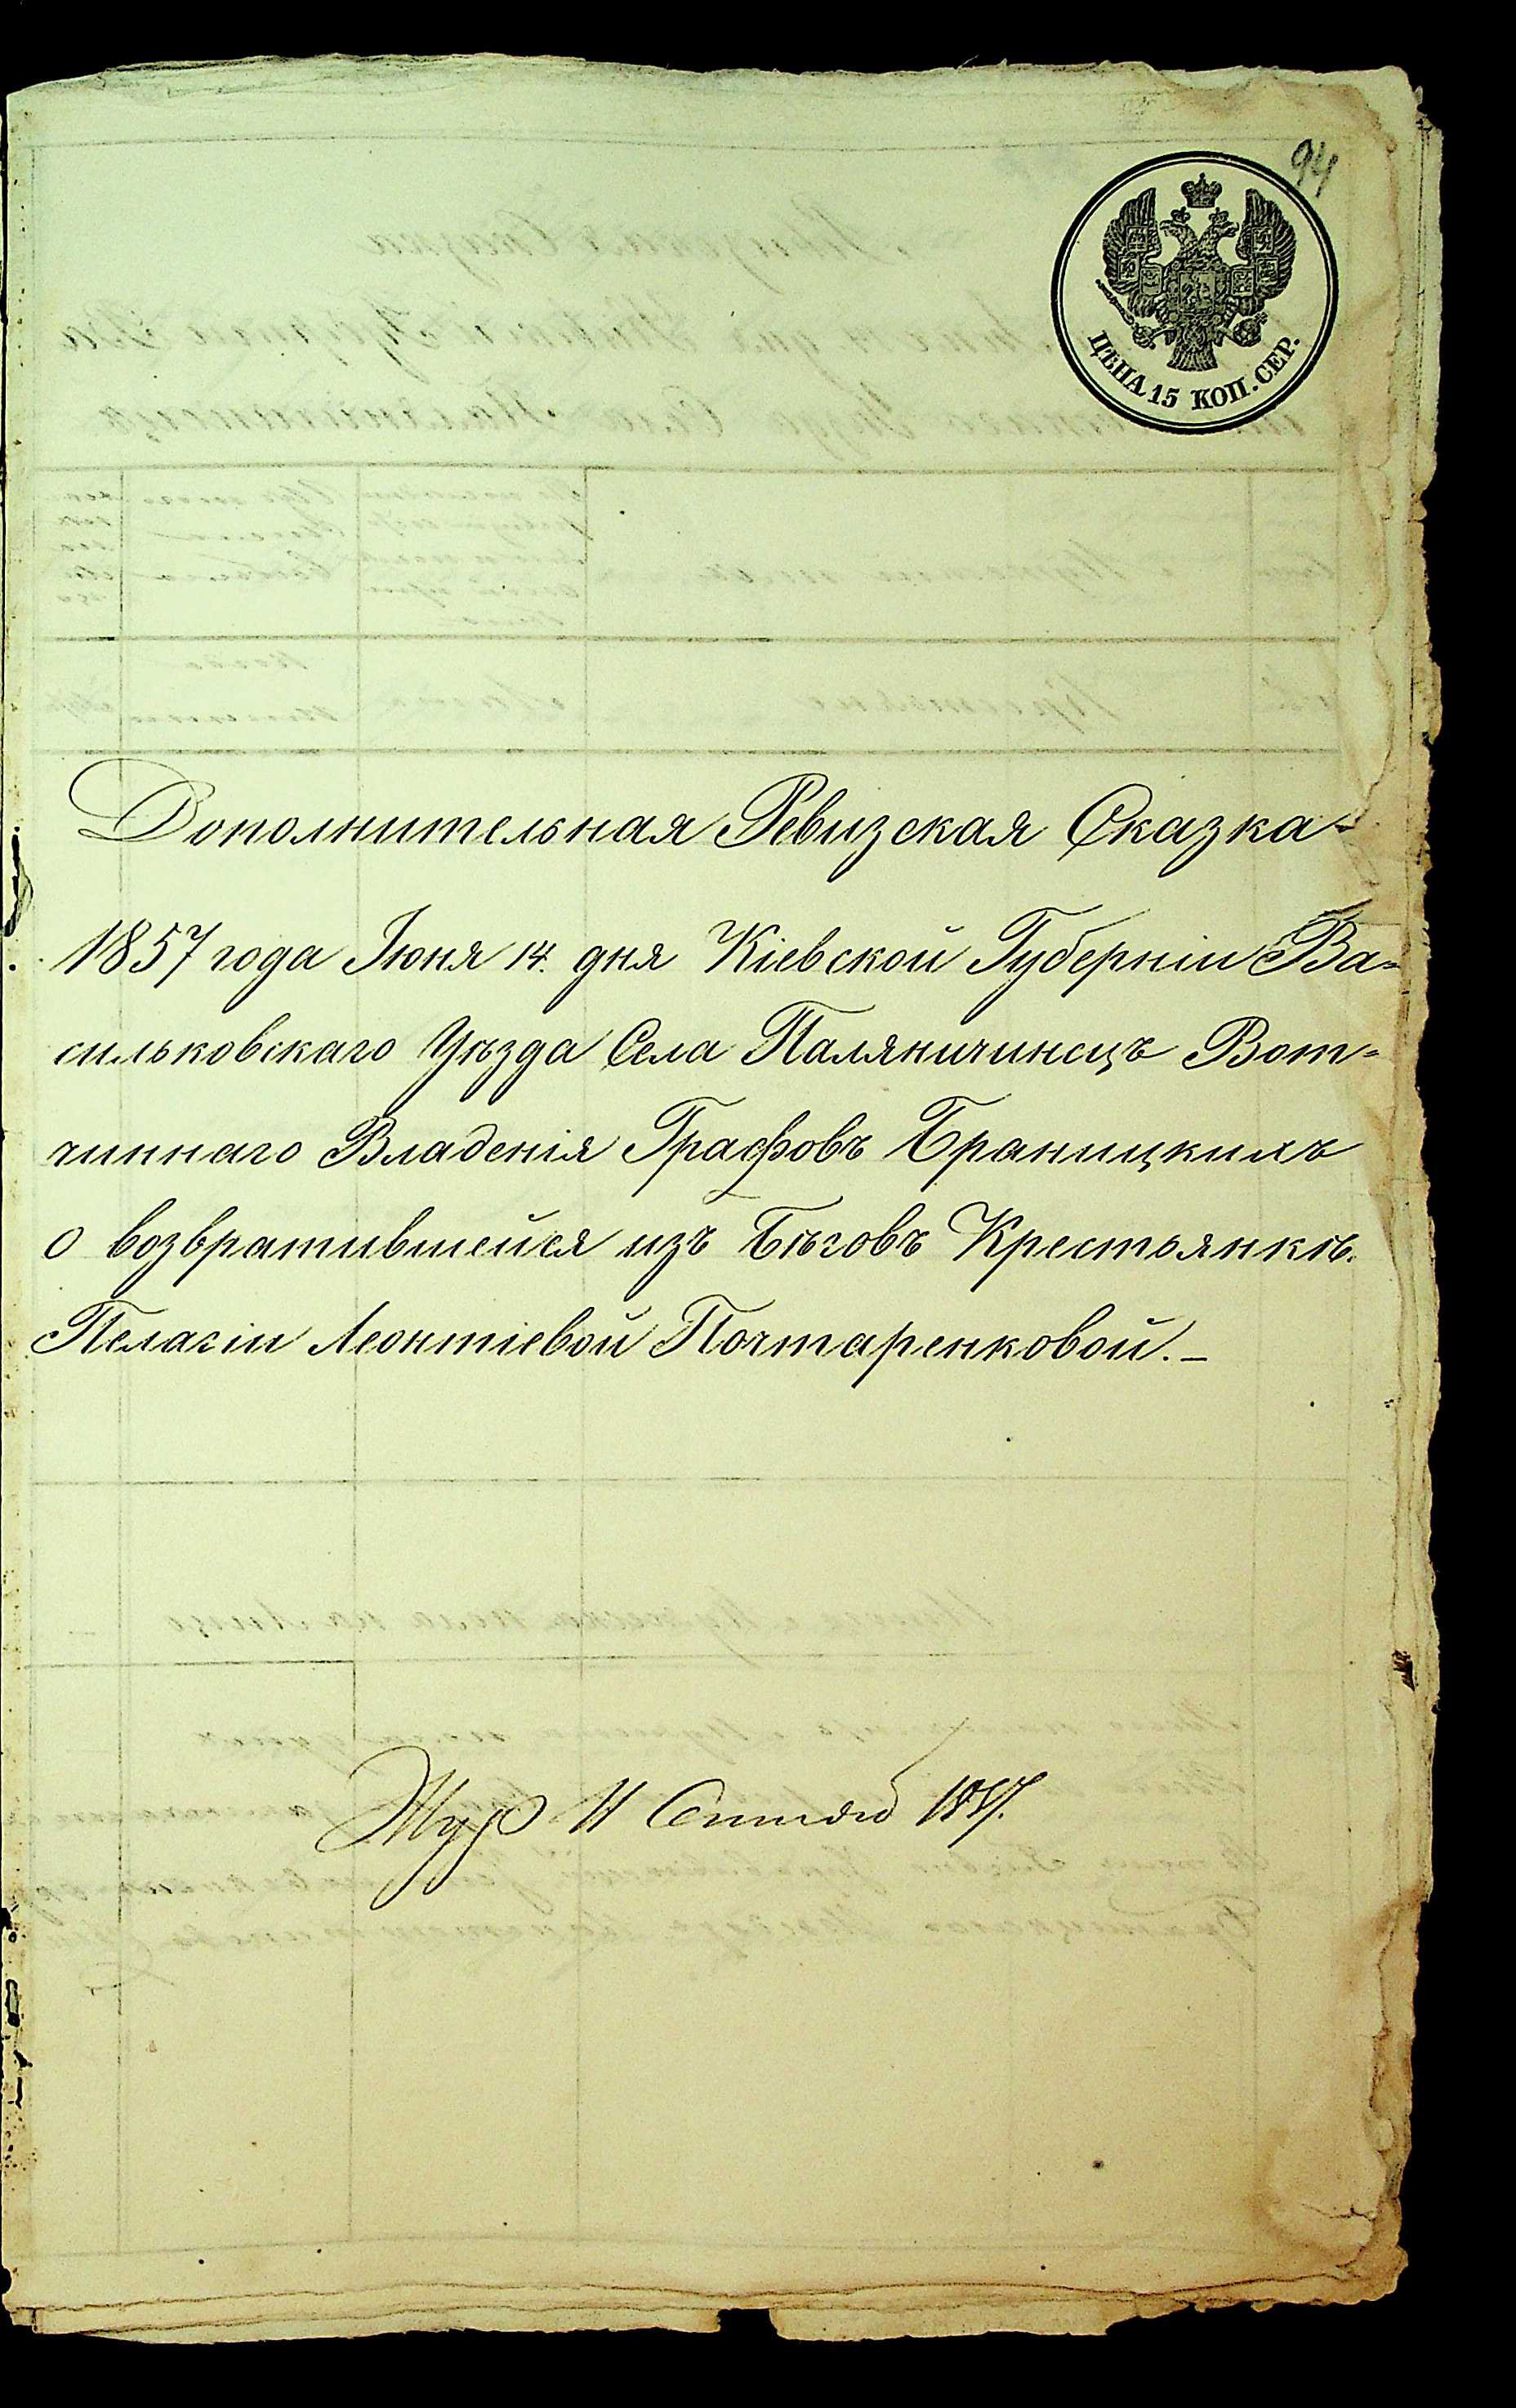 94
ЦѢНА 15 КОП. СЕР.
Дополнительная Ревизская Сказка
1857 года Іюня 14. дня Кіевской Губерніи Ва=
сильковскаго Уѣзда Села Паляничинецъ Вот=
чиннаго Владенія Графовъ Браницкихъ
о возвратившейся изъ Бѣговъ Крестьянкѣ.
Пелагіи Леонтіевой Почтаренковой.–
Жур 11 Сентяб 1857.